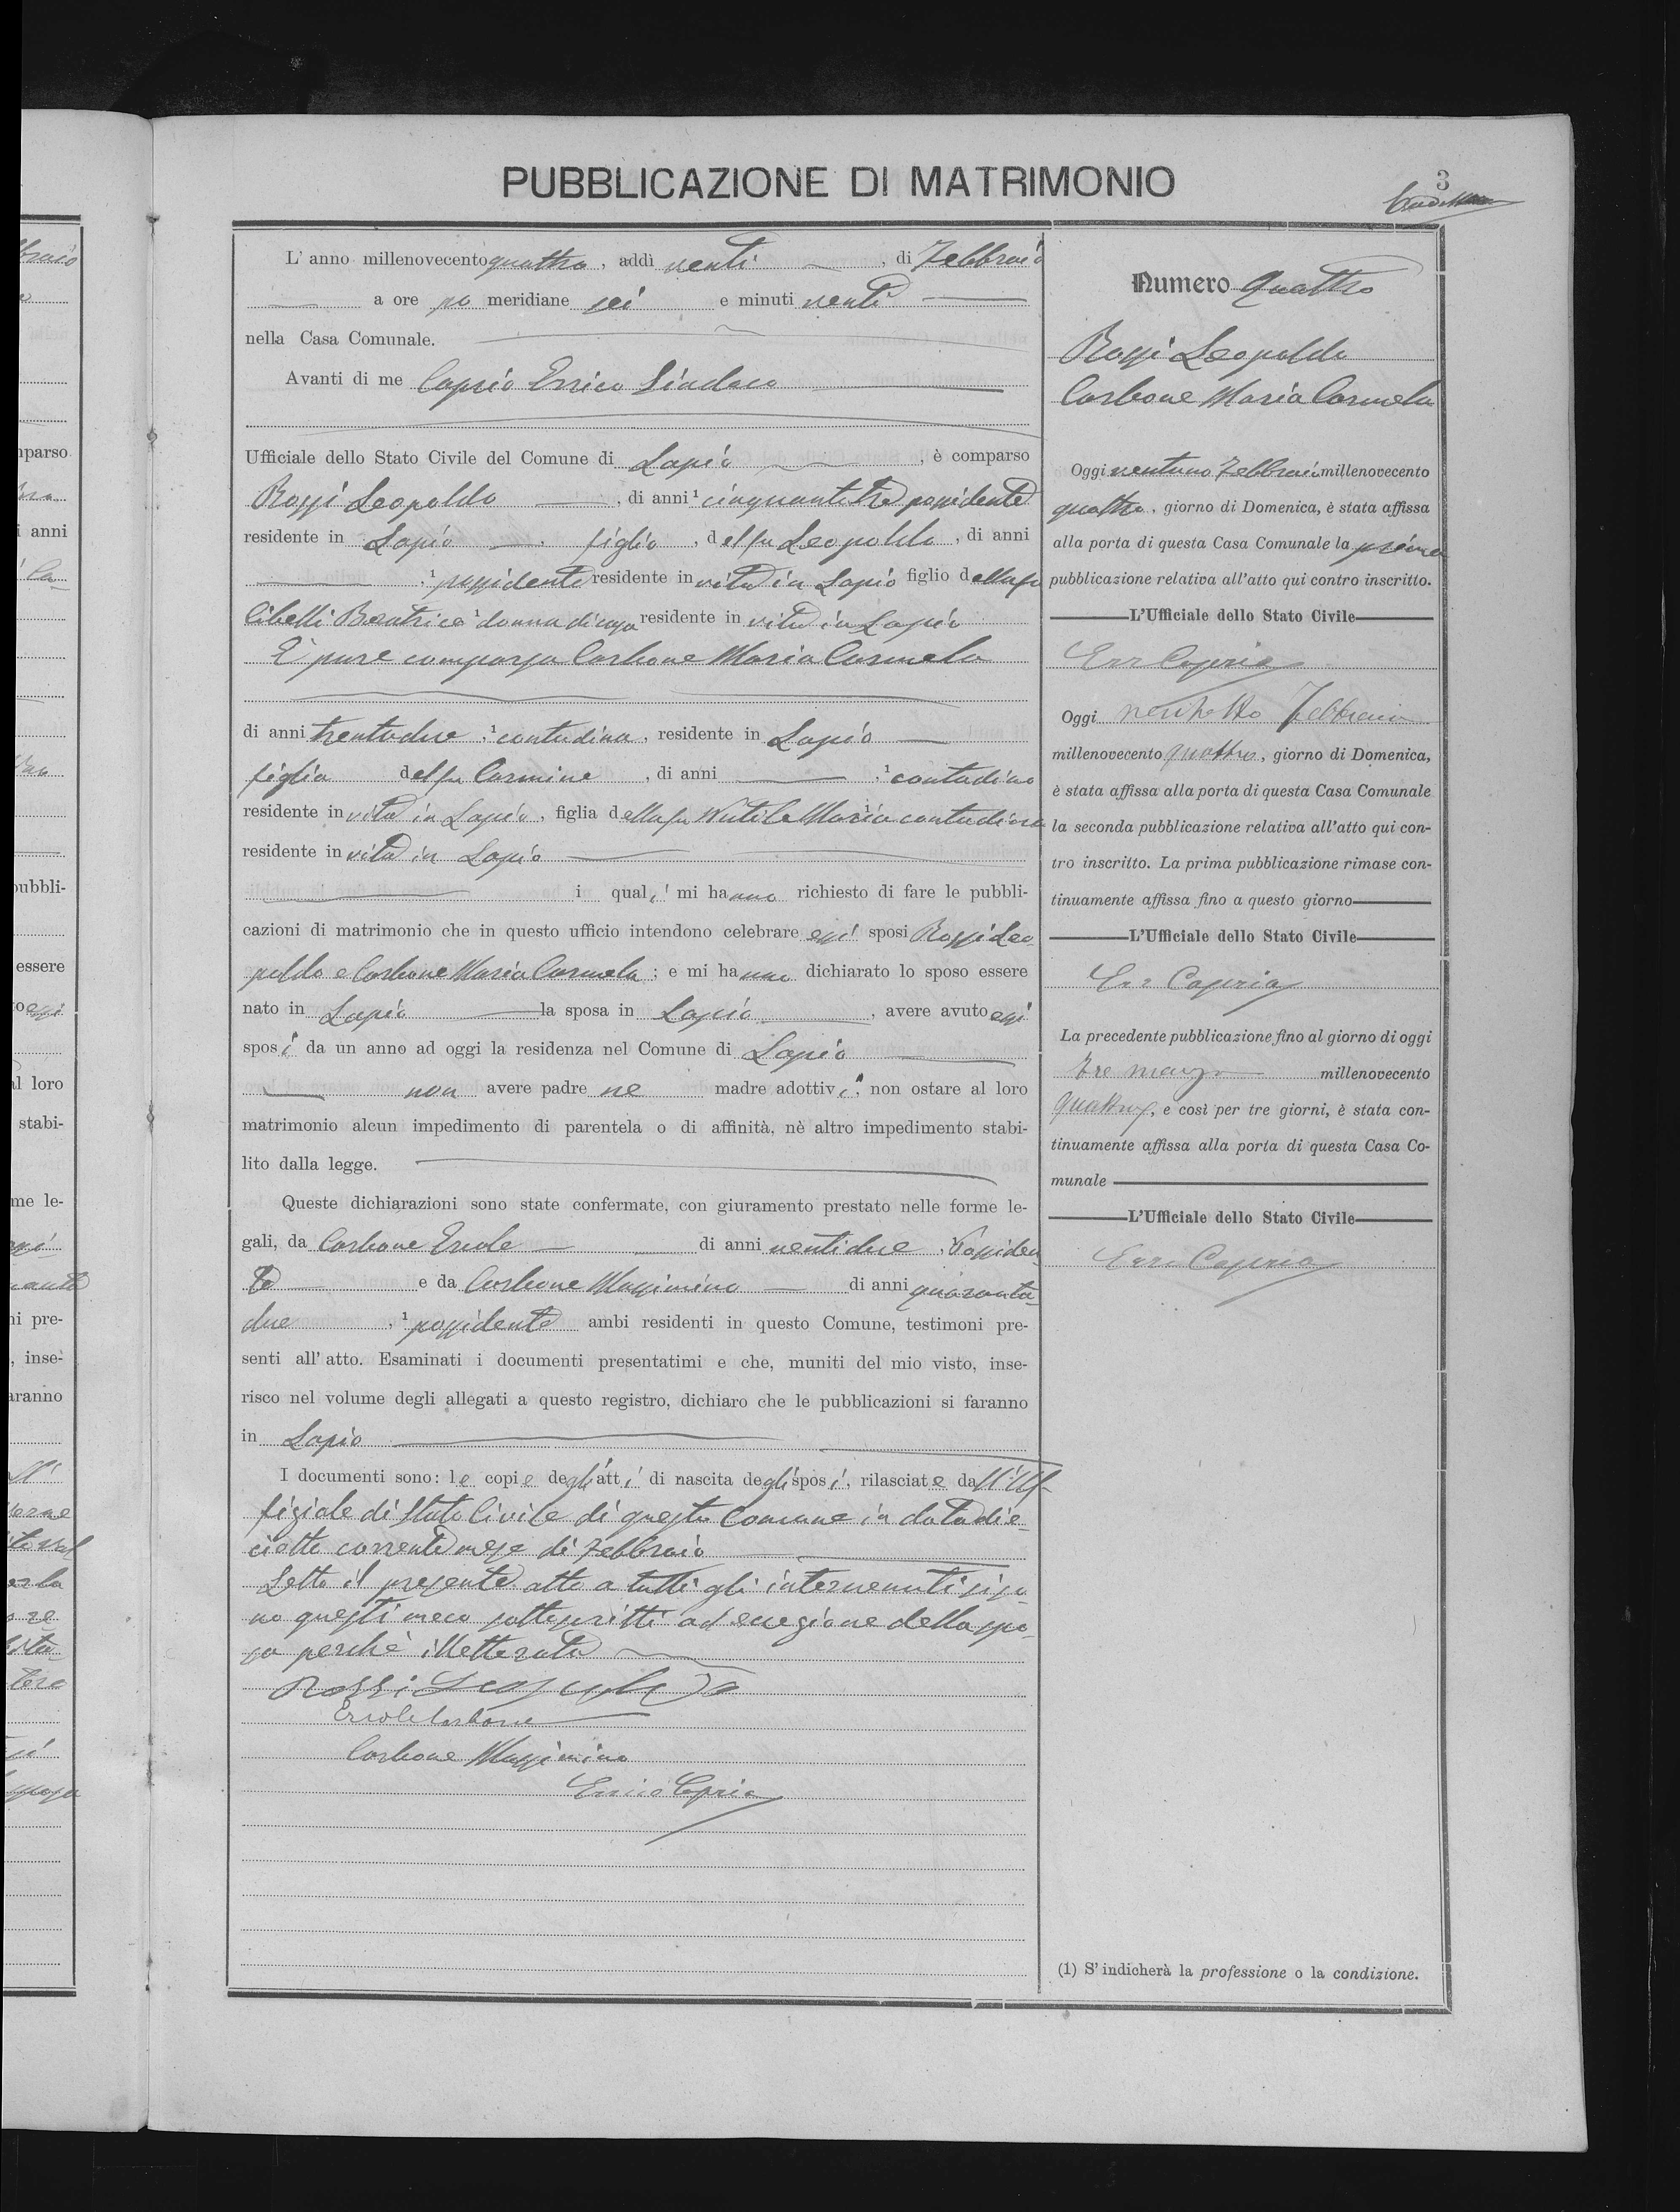 PUBBLICAZIONE DI MATRIMONIO
3
L' anno millenovecento quattro, addì venti, di Febbraio
a ore po meridiane sei e minuti venti
nella Casa Comunale.
Avanti di me Caprio Errico Sindaco
Ufficiale dello Stato Civile del Comune di Lapio, è comparso
Rossi Leopoldo, di anni ¹ cinquantatre possidente
residente in Lapio, figlio, del fu Leopoldo, di anni
, ¹ possidente residente in vita in Lapio figlio della fu
Cibelli Beatrice ¹ donna di casa residente in vita in Lapio
È pure comparsa Carbone Maria Carmela
di anni trentadue, ¹ contadina, residente in Lapio
figlia del fu Carmine, di anni , ¹ contadino
residente in vita in Lapio, figlia della fu Nutile Maria ¹ contadina
residente in vita in Lapio
i quali mi hanno richiesto di fare le pubbli-
cazioni di matrimonio che in questo ufficio intendono celebrare essi sposi Rossi Leo-
poldo e Carbone Maria Carmela; e mi hanno dichiarato lo sposo essere
nato in Lapio la sposa in Lapio, avere avuto essi
sposi da un anno ad oggi la residenza nel Comune di Lapio
non avere padre ne madre adottivi, non ostare al loro
matrimonio alcun impedimento di parentela o di affinità, nè altro impedimento stabi-
lito dalla legge.
Queste dichiarazioni sono state confermate, con giuramento prestato nelle forme le-
gali, da Carbone Ercole di anni ventidue, ¹ Possiden-
te e da Carbone Massimino di anni quaranta-
due, ¹ possidente ambi residenti in questo Comune, testimoni pre-
senti all' atto. Esaminati i documenti presentatimi e che, muniti del mio visto, inse-
risco nel volume degli allegati a questo registro, dichiaro che le pubblicazioni si faranno
in Lapio
I documenti sono: le copie degli atti di nascita degli sposi, rilasciate dall'Uf-
fiziale di Stato Civile di questo Comune in data die-
ciotto corrente mese di Febbraio
Letto il presente atto a tutti gli intervenuti si so-
no questi meco sottoscritti ad eccezione della spo-
sa perchè illetterata
Rossi Leopoldo
Ercole Carbone
Carbone Massimino
Errico Caprio
Numero Quattro
Rossi Leopoldo
Carbone Maria Carmela
Oggi ventuno Febbraio millenovecento
quattro, giorno di Domenica, è stata affissa
alla porta di questa Casa Comunale la prima
pubblicazione relativa all'atto qui contro inscritto.
L'Ufficiale dello Stato Civile
Err Caprio
Oggi ventotto Febbraio
millenovecento quattro, giorno di Domenica,
è stata affissa alla porta di questa Casa Comunale
la seconda pubblicazione relativa all'atto qui con-
tro inscritto. La prima pubblicazione rimase con-
tinuamente affissa fino a questo giorno
L'Ufficiale dello Stato Civile
Err Caprio
La precedente pubblicazione fino al giorno di oggi
tre marzo millenovecento
quattro, e così per tre giorni, è stata con-
tinuamente affissa alla porta di questa Casa Co-
munale
L'Ufficiale dello Stato Civile
Err Caprio
(1) S' indicherà la professione o la condizione.